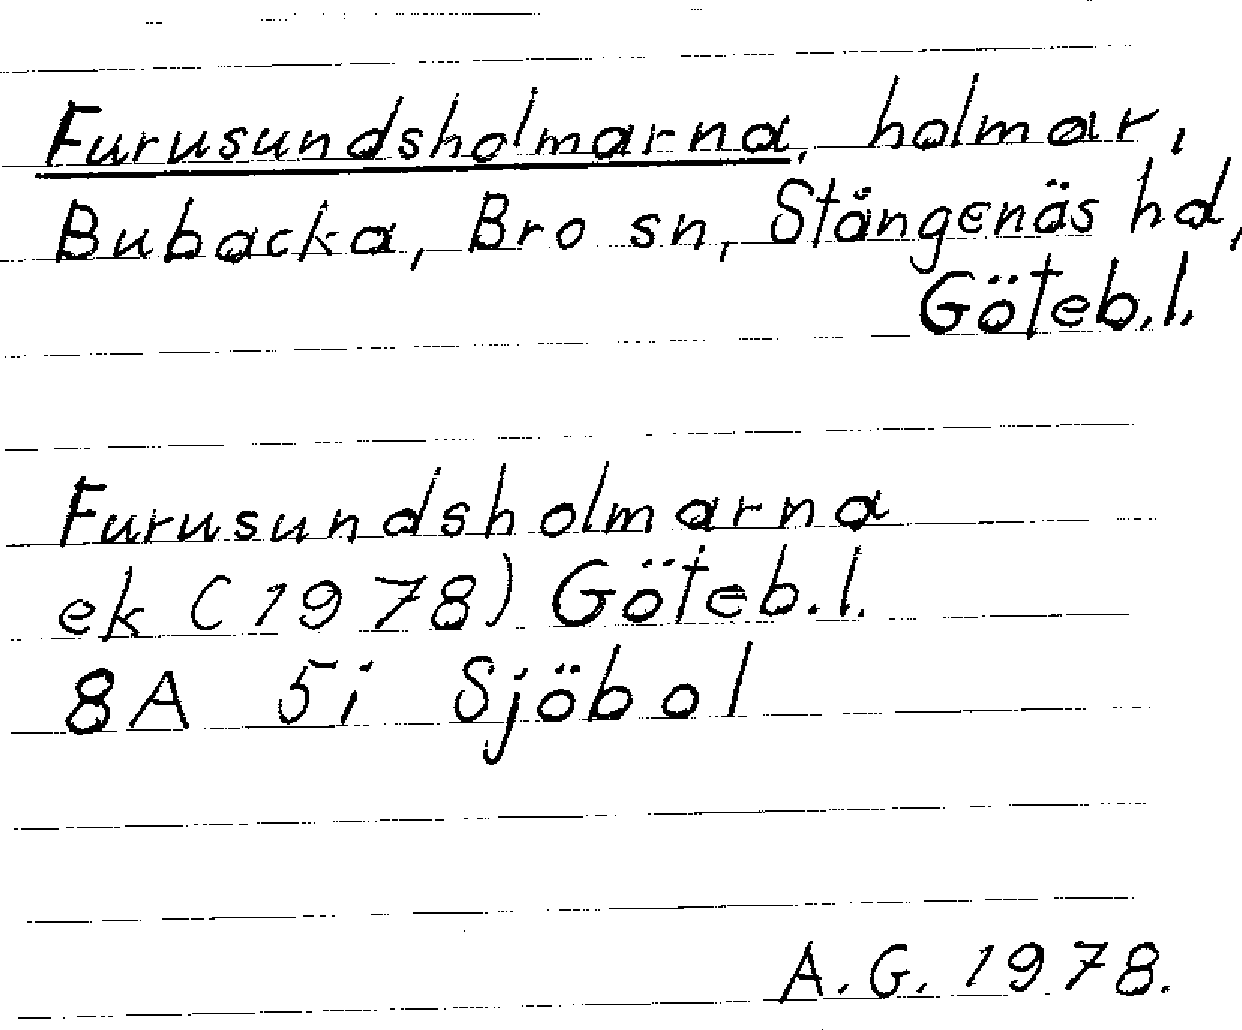 Furusundsholmarna, holmar,
Bubacka, Bro sn, Stångenäs hd,
Göteb.l.
Furusundsholmarna
ek (1978) Göteb.l.
8A 5i Sjöbol
A.G. 1978.